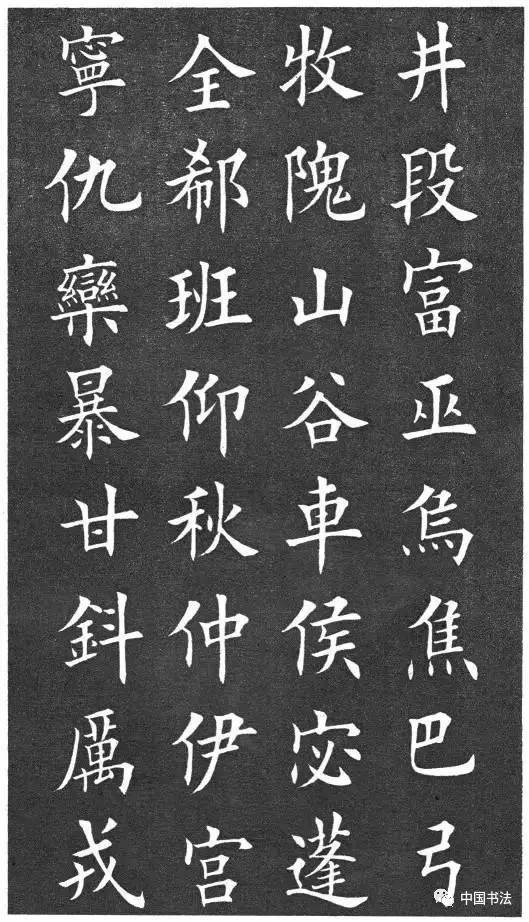 井段富巫烏焦巴弓
牧隗山谷車侯宓蓬
全郗班仰秋仲伊宫
寧仇欒暴甘鈄厲戎
中国书法